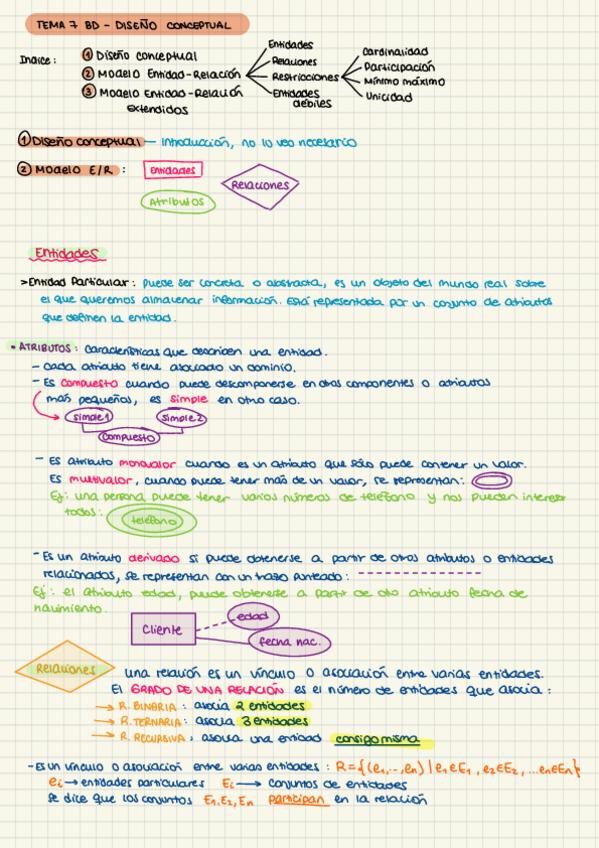 TEMA 7 BD - DISEÑO CONCEPTUAL
Indice: ① Diseño conceptual
② Modelo Entidad-Relación
③ Modelo Entidad-Relación extendidos
Entidades
Relaciones
Restricciones
Entidades débiles
Cardinalidad
Participación
Mínimo máximo
Unicidad
① Diseño conceptual — introducción, no lo veo necesario
② Modelo E/R : Entidades
Relaciones
Atributos
Entidades
>Entidad Particular: puede ser concreta o abstracta, es un objeto del mundo real sobre
el que queremos almacenar información. Está representada por un conjunto de atributos
que definen la entidad.
• ATRIBUTOS: características que describen una entidad.
- Cada atributo tiene asociado un dominio.
- Es compuesto cuando puede descomponerse en otros componentes o atributos
más pequeños, es simple en otro caso.
simple1 simple2
compuesto
- Es atributo monovalor cuando es un atributo que sólo puede contener un valor.
Es multivalor, cuando puede tener más de un valor, se representan:
Ej: una persona puede tener varios números de teléfono y nos pueden interesar
todos: teléfono
- Es un atributo derivado si puede obtenerse a partir de otros atributos o entidades
relacionados, se representan con un trazo punteado: ----------
Ej: el atributo edad, puede obtenerse a partir de otro atributo fecha de
nacimiento.
Cliente edad
fecha nac.
Relaciones una relación es un vínculo o asociación entre varias entidades.
El GRADO DE UNA RELACIÓN es el número de entidades que asocia:
→ R. BINARIA: asocia 2 entidades
→ R. TERNARIA: asocia 3 entidades
→ R. RECURSIVA, asocia una entidad consigo misma
- Es un vínculo o asociación entre varias entidades: R={(e1,..,en) | e1∈E1, e2∈E2, ...en∈En}
ei → entidades particulares Ei → conjuntos de entidades
Se dice que los conjuntos E1,E2,En participan en la relación